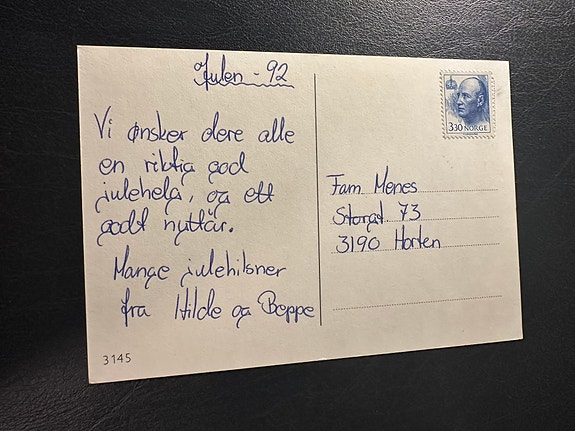 Julen - 92
Vi ønsker dere alle
en riktig god
julehelg, og ett
godt nyttår.
Mange julehilsner
fra Hilde og Beppe
3145
3.30 NORGE
Fam. Menes
Storgt 73
3190 Horten